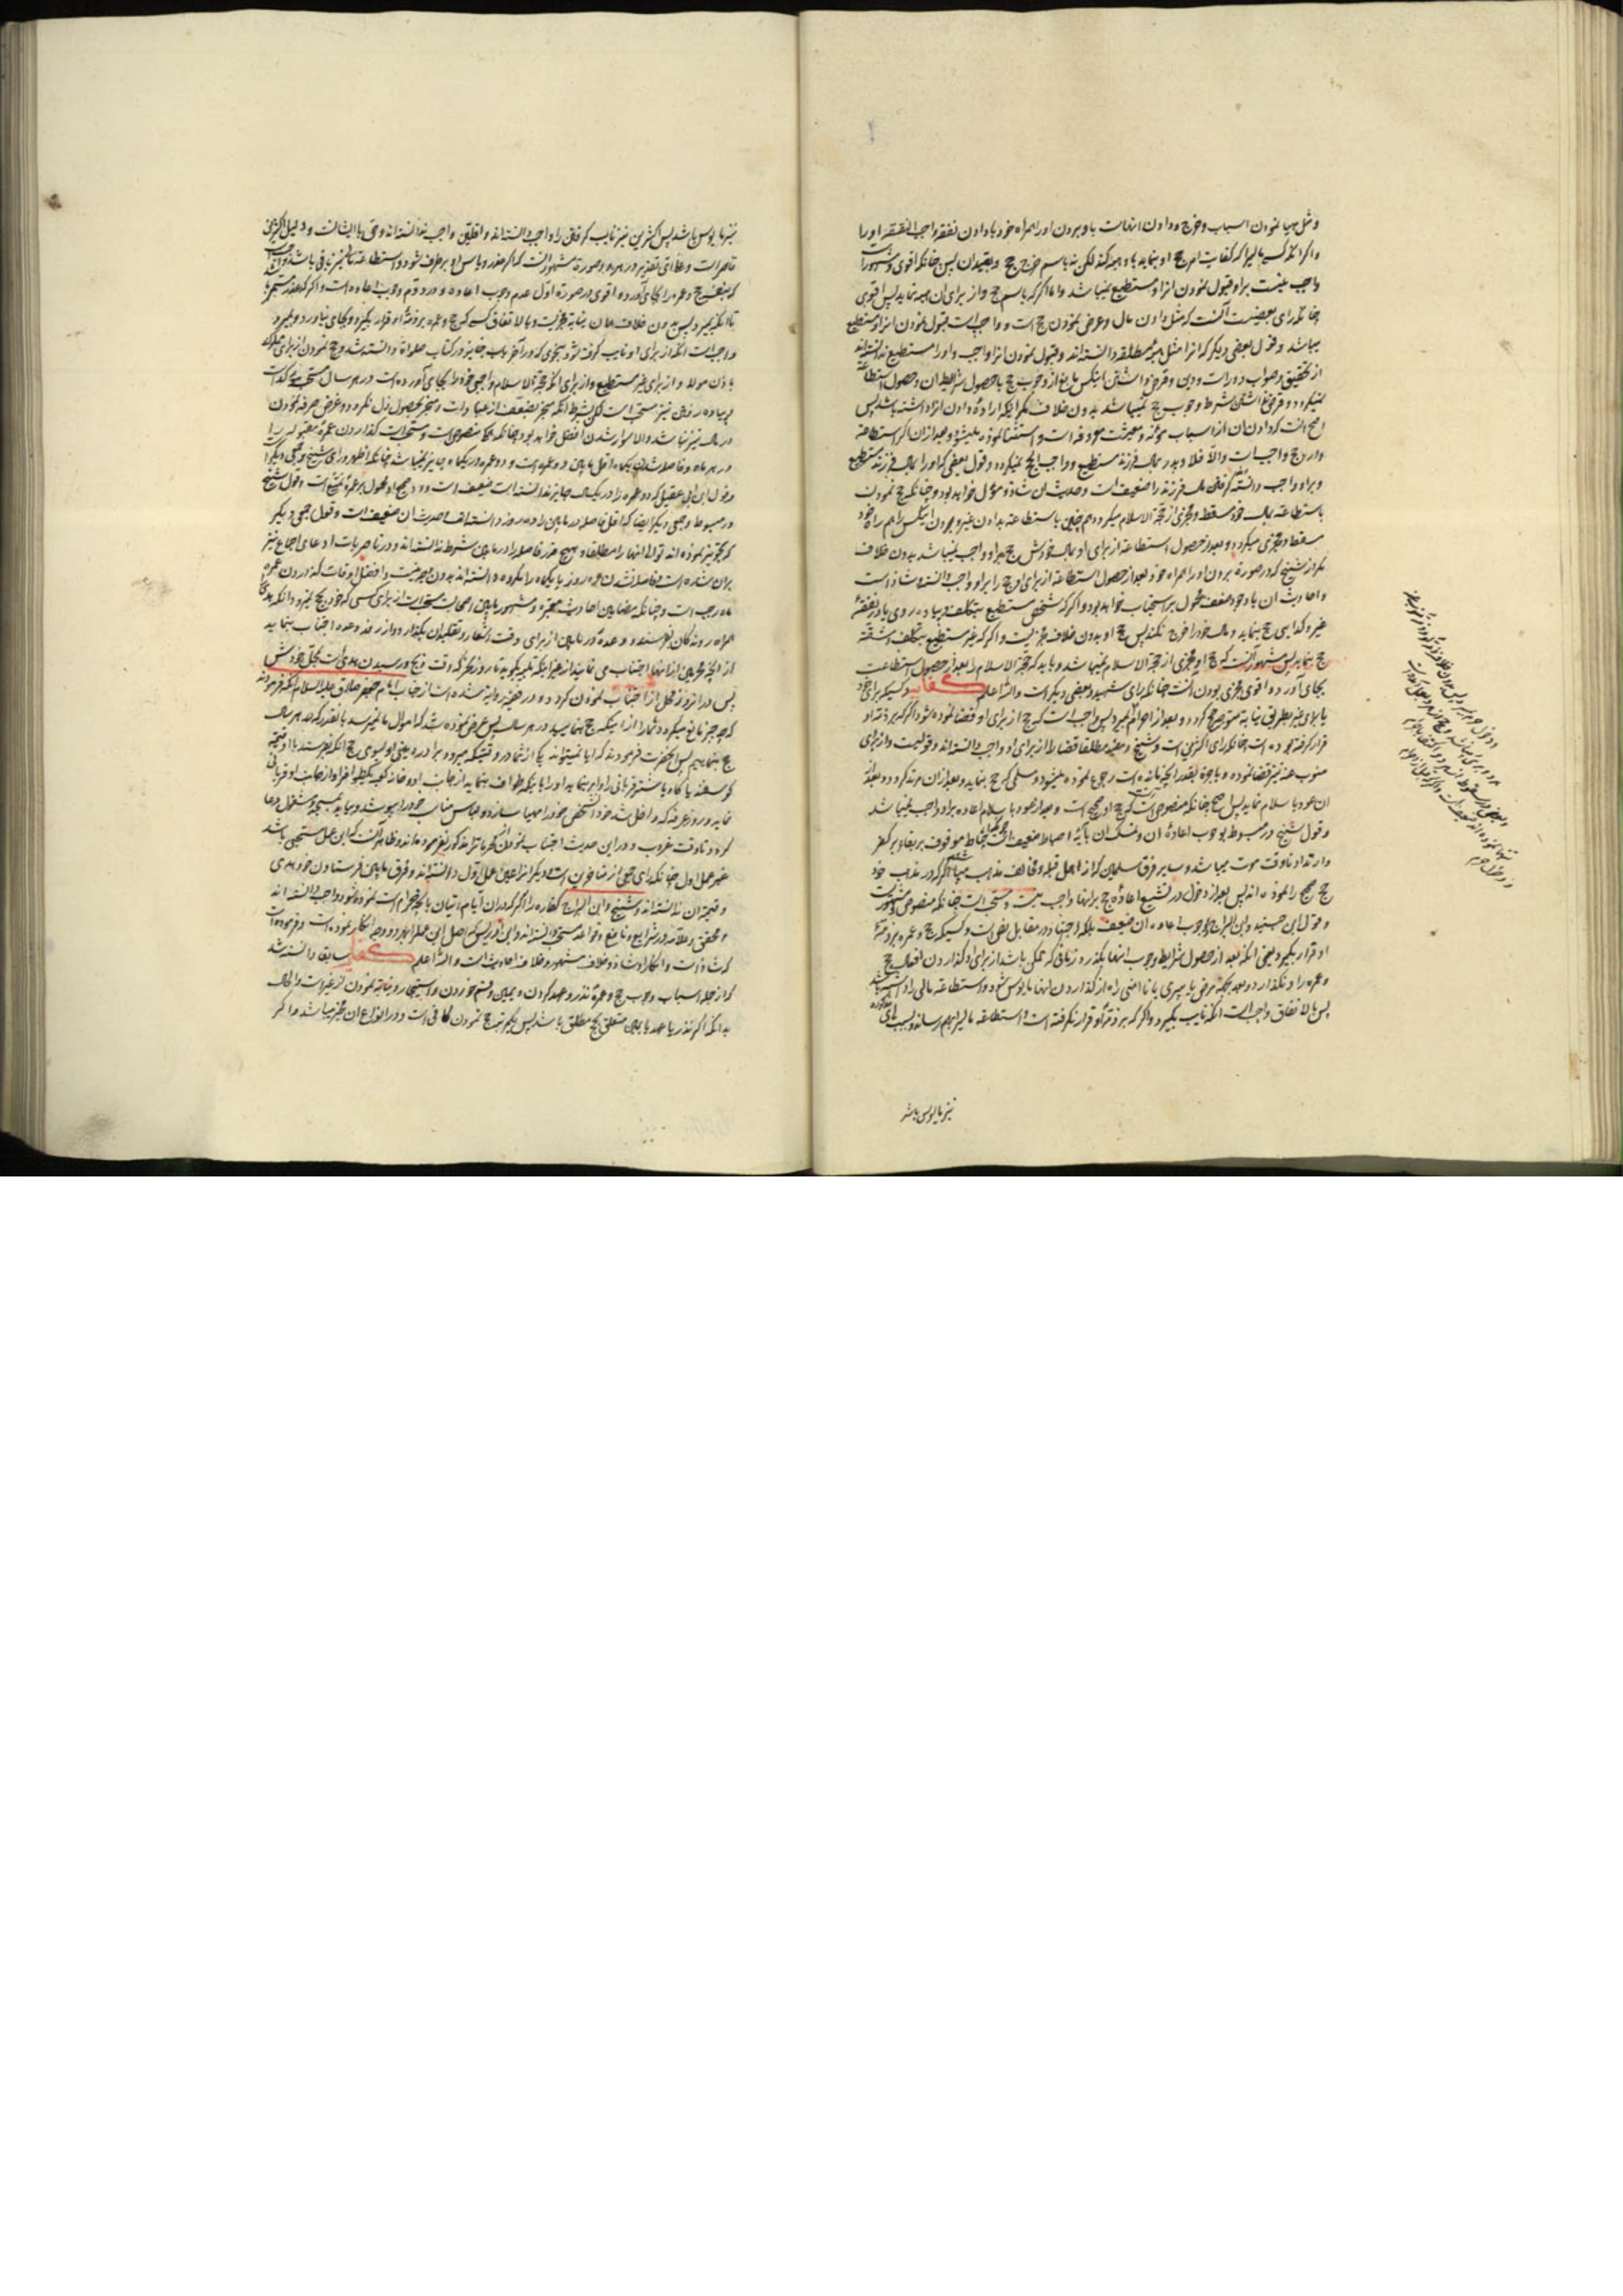 و مثل مهیا نمودن اسباب و خرج و دادن انهاست باو و بردن او را همراه خود با دادن نفقه واجب النفقه او را
و اگر انکه کسی مالیرا که کفایت امر حج او بنماید باو هبه کند لکن نه باسم خرج حج و بقید ان پس چنانکه اقوی و مشهور است
واجب نیست بر او قبول نمودن انرا و مستطیع نمیباشد و اما اگر که باسم حج و از برای ان هبه نماید پس اقوی
چنانکه رای بعضیست آنست که مثل دادن مال و عرض نمودن حج است و واجب است قبول نمودن انرا و مستطیع
میباشد و قول بعضی دیگر که انرا مثل هبه مطلقه دانسته اند و قبول نمودن انرا واجب و او را مستطیع ندانسته اند
از تحقیق و صواب دور است و دین و قرض داشتن اینکس مانع از وجوب حج با حصول شرایط ان و حصول استطاعة
نمیگردد و قرض شرط وجوب حج نمیباشد بدون خلاف مگر اینکه اراده دادن انرا داشته باشد پس
اصح انست که دادن ان از اسباب مؤنه و معیشت معدود است و استثنا نموده میشود و بعد از ان اگر استطاعة
دارد حج واجب است والا فلا و پدر بمال فرزند مستطیع و واجب الحج نمیگردد و قول بعضی که او را بمال فرزند مستطیع
و بر او واجب دانسته گرفتن مال فرزند را ضعیف است و حدیث ان شاذ و مؤل خواهد بود و چنانکه حج نمودن
باستطاعة بمال خود مسقط و مجزی از حجة الاسلام میگردد همچنین باستطاعة بدادن غیر و بردن اینکس را همراه خود
مسقط و مجزی میگردد و بعد از حصول استطاعة از برای او بمال خودش حج بر او واجب نمیباشد بدون خلاف
مگر از شیخ که در صورة بردن او را همراه خود بعد از حصول استطاعة از برای او حج را بر او واجب دانسته و شاذ است
و احادیث ان با وجود ضعف محمول بر استحباب خواهد بود و اگر که شخص مستطیع بتکلف و پیاده روی یا در نفقهٔ
غیر و گدایی حج بنماید و مال خود را خرج نکند پس حج او بدون خلاف مجزیست و اگر که غیر مستطیع بتکلف و مشقة
حج بنماید پس مشهور آنست که حج او مجزی از حجة الاسلام نمیباشد و باید که حجة الاسلام را بعد از حصول استطاعت
بجای آورد و اقوی مجزی بودن انست چنانکه رای شهید و بعضی دیگر است والله اعلم کفایة و کسیکه برای خود
یا برای غیر بطریق نیابة متوجه حج گردد و بعد از احرام بمیرد پس واجب است که حج از برای او قضا نموده شود اگر که بر ذمه او
قرار گرفته بوده است چنانکه رای اکثرین است و شیخ و مفید مطلقا قضا را از برای او واجب دانسته اند و قولیست و از برای
منوب عنه نیز قضا نموده و باجرة بقدر انچه مانده است رجوع نموده میشود و مسلمی که حج بنماید و بعد از ان مرتد گردد و بعد از
ان عود باسلام نماید پس اصح چنانکه منصوص است که حج او صحیح است و بعد از عود باسلام اعاده بر او واجب نمیباشد
و قول شیخ در مبسوط بوجوب اعادهٔ ان و تمسک ان بآیة احباط ضعیف است چه احباط موقوف بر بقا بر کفر
و ارتداد تا وقت موت میباشد و سایر فرق مسلمین که از اهل قبله و مخالف مذهب میباشند اگر که در مذهب خود
حج صحیح را نموده اند پس بعد از دخول در تشیع اعادهٔ حج بر انها واجب نیست و مستحب است چنانکه منصوص و مشهور است
و قول ابن جنید و ابن البراج بوجوب اعاده ان ضعیف بلکه اجتهاد در مقابل نص است و کسیکه حج و عمره بر ذمهٔ
او قرار بگیرد یعنی انکه بعد از حصول شرایط وجوب انها بگذرد زمانی که ممکن باشد از برای او گذاردن افعال حج
و عمره را و نگذارد و بعد بجهة مرض یا پیری یا ناامنی راه از گذاردن انها مایوس شود و استطاعة مالی را داشته باشد
پس بالاتفاق واجب است انکه نایب بگیرد و اگر که بر ذمهٔ او قرار نگرفته است و استطاعة مالیرا بهم رسانده و بسبب
نیز مایوس باشد
نیز مایوس باشد پس اکثرین نیز نایب گرفتن را واجب دانسته اند و اقلین واجب ندانسته اند و حق با ایشانست و دلیل اکثرین
قاصر است و علی ای تقدیر در هر دو صورة مشهور انست که اگر عذر و یاس او برطرف شود و استطاعة مالی نیز باقی باشد واجب است
که بنفسه حج و عمره را بجای آورد و اقوی در صورة اول عدم وجوب اعاده و در دوم وجوب اعاده است و اگر که عذر مستمر باشد
تا انکه بمیرد پس بدون خلاف همان نیابة مجزیست و بالاتفاق کسی که حج و عمره بر ذمهٔ او قرار بگیرد و بجای نیاورد و بمیرد
واجب است انکه از برای او نایب گرفته شود بنحوی که در آخر باب جنایز در کتاب صلواة دانسته شد و حج نمودن از برای مملوک
باذن مولا و از برای غیر مستطیع و از برای انکه حجة الاسلام واجبی خود را بجای آورده است در هر سال مستحب مؤکد است
و پیاده رفتن نیز مستحب است لکن بشرط انکه منجر بضعف از عبادات و منجر بحصول ذل نگردد و غرض صرفه نمودن
در مال نیز نباشد والا سوار شدن افضل خواهد بود چنانکه منصوص است و مستحب است گذاردن عمرهٔ مفرده را
در هر ماه و فاصله شدن یکماه اقل مابین دو عمره است و دو عمره در یکماه جایز نمیباشد چنانکه اظهر و رای شیخ و جمعی دیگر است
و قول ابن ابی عقیل که دو عمره را در یکسال جایز ندانسته است ضعیف است و حدیث صحیح او محمول بر عمرهٔ تمتع است و قول شیخ
در مبسوط و جمعی دیگر ایضا که اقل فاصله در مابین را ده روز دانسته اند و حدیث ان ضعیف است و قول جمعی دیگر
که تجویز نموده اند توالی انها را مطلقا و هیچ قدر فاصله را در مابین شرط ندانسته اند و در ناصریات ادعای اجماع نیز
بران شده است و فاصله نشدن ده روز یا یکماه را مکروه دانسته اند بدون وجه نیست و افضل اوقات گذاردن عمره
ماه رجب است و چنانکه مضامین احادیث معتبره و مشهور مابین اصحاب است مستحب است از برای کسی که خود بحج نمیرود انکه هدی
همراه رونده گان بفرستد و وعده در مابین از برای وقت اشعار و تقلید ان بگذارد و از روز وعده اجتناب بنماید
از انچه محرمین از انها اجتناب می نمایند از غیر اینکه تلبیه بگوید تا روز نحر که وقت ذبح و رسیدن هدی است بمحل خودش
پس در انروز محل از اجتناب نمودن گردد و در فقیه روایة شده است از جناب امام جعفر صادق علیه السلام انکه فرموده اند
که چه چیز مانع میگردد شما را از اینکه حج بنمایید در هر سال پس عرض نموده شد که اموال ما نمیرسد بانقدر که در هر سال
حج بنماییم پس انحضرت فرمودند که ایا نمیتواند یکی از شما در وقتیکه میرود برادر دینی او بسوی حج انکه بفرستد با او قیمة
گوسفند یا گاو یا شتر قربانی را و امر بنماید او را باینکه طواف بنماید از جانب او و خانه کعبه یکهفته و از جانب او قربانی
نماید و روز عرفه که داخل شد خود انشخص خود را مهیا سازد و لباس مناسب خود را بپوشد و بیاید بمسجد و مشغول دعا
گردد تا وقت غروب و در این حدیث اجتناب نمودن از محرمات را مذکور نفرموده اند و ظاهر آنست که این عمل مستحبی باشد
غیر عمل اول چنانکه رای جمعی از متاخرین است و دیگر انرا عین عمل اول دانسته اند و فرق مابین فرستادن خود هدی
و قیمة ان ندانسته اند و شیخ و ابن البراج کفاره را اگر که در ان ایام اتیان بانچه حرام است نموده شود واجب دانسته اند
و محقق و علامه در شرایع و نافع و قواعد مستحب دانسته اند و ابن ادریس که اصل این عمل را بهر دو وجه انکار نموده است و فرموده است
که شاذ است و انکار او شاذ و خلاف مشهور و خلاف احادیث است والله اعلم کفایة سابقا دانسته شد
که از جمله اسباب وجوب حج و عمره نذر و عهد کردن و یمین و قسم خوردن و استیجار و نیابة نمودن از غیر است و الحال
بدانکه اگر نذر یا عهد یا یمین متعلق بحج مطلق باشد پس یکمرتبه حج نمودن کافی است و در انواع ان مخیر میباشد و اگر